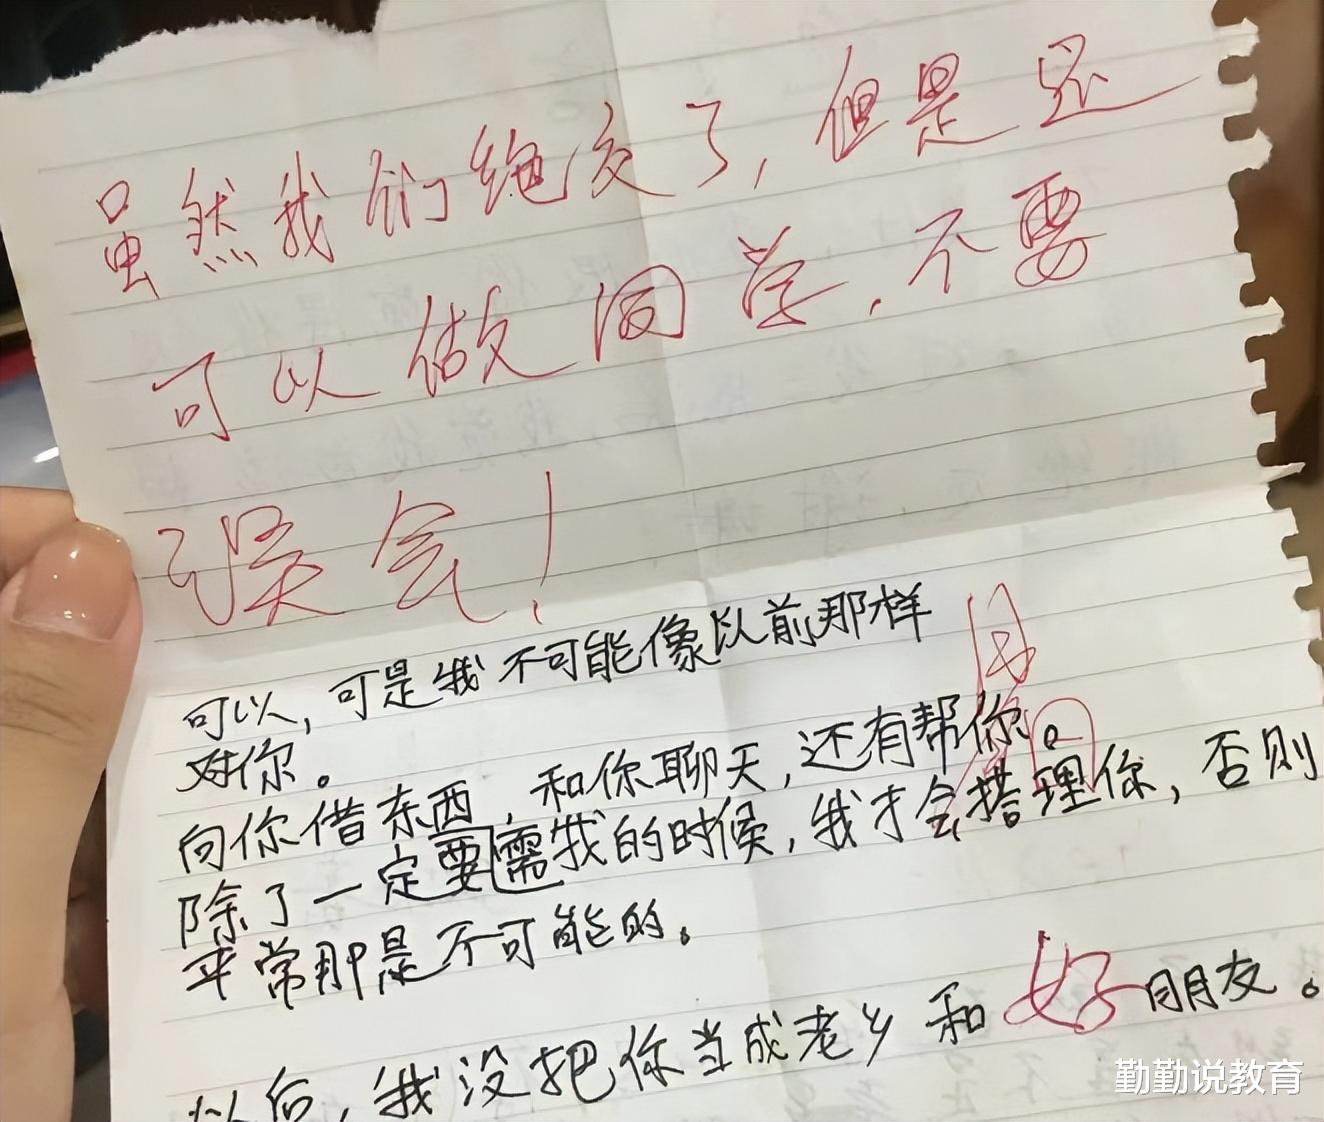 虽然我们绝交了，但是还
可以做同学，不要
误会！
可以，可是我不可能像以前那样
对你。
向你借东西，和你聊天，还有帮你。
除了一定要需我的时候，我才会搭理你，否则
平常那是不可能的。
以后，我没把你当成老乡和好朋友。
勤勤说教育